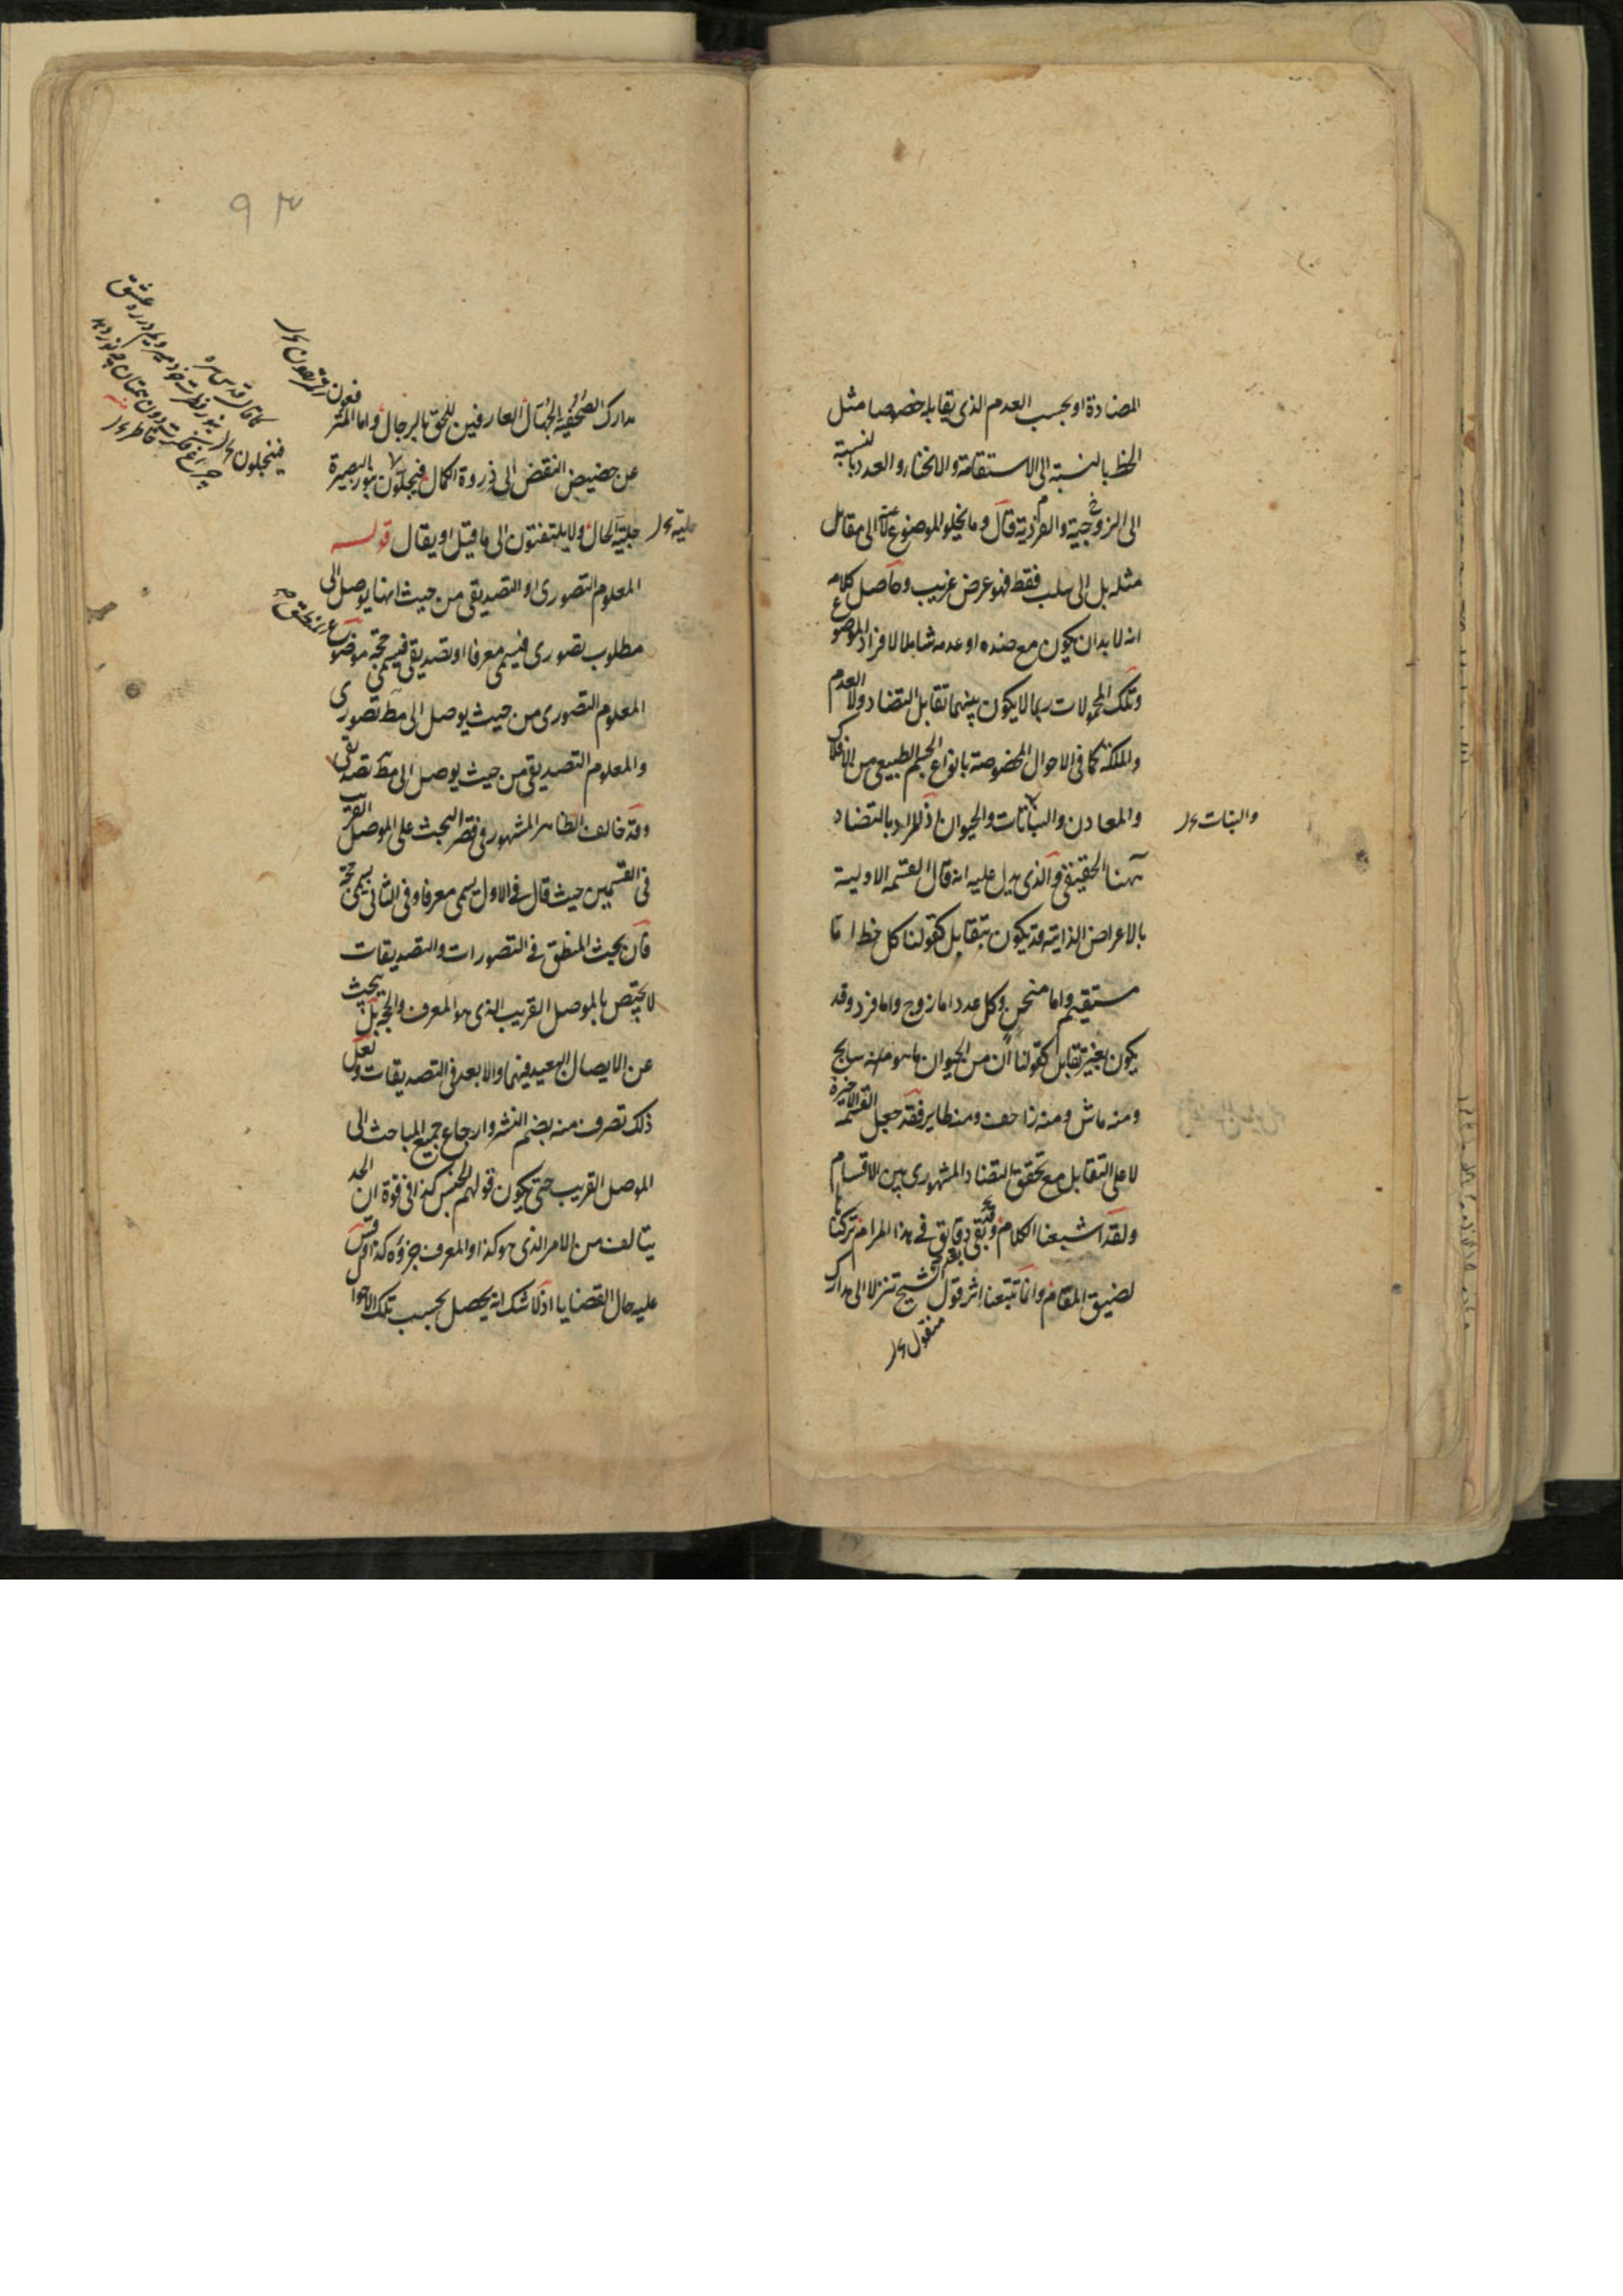 المضادة او بحسب العدم الذى يقابله خصوصا مثل
الخط بالنسبة الى الاستقامة والانحناء والعدد بالنسبة
الى الزوجية والفردية قال وما يخلو الموضوع عنه لا الى مقابل
مثله بل الى سلب فقط فهو عرض غريب وحاصل كلامه
انه لا بد ان يكون مع ضده او عدمه شاملا لافراد الموضوع
وتلك المحمولات ربما لا يكون بينهما تقابل التضاد ولا العدم
والملكة كما فى الاحوال المخصوصة بانواع الجسم الطبيعى من الافلاك
والمعادن والنباتات والحيوان اذ المراد بالتضاد
والنبات
ههنا الحقيقى والذى يدل عليه انه قال القسمة الاولية
بالاعراض الذاتية قد يكون بتقابل كقولنا كل خط اما
مستقيم واما منحن وكل عدد اما زوج واما فرد وقد
يكون بغير تقابل كقولنا ان من الحيوان ما هو منه سابح
ومنه ماش ومنه زاحف ومنه طاير فقد جعل القسمة الاخيرة
لا على التقابل مع تحقق التضاد المشهورى بين الاقسام
ولقد اشبعنا الكلام وبقى دقايق فى هذا المرام تركناها
لضيق المقام وانا تتبعنا اثر قول الشيخ تنزلا الى مدارك
منقول
٩٣
مدارك الصحفية الجهال العارفين للحق بالرجال واما المترفعون
عن حضيض النقض الى ذروة الكمال فيجلون بنور البصيرة
جلية الحال ولا يلتفتون الى ما قيل او يقال قوله
المعلوم التصورى او التصديقى من حيث انها يوصل الى
مطلوب تصورى فيسمى معرفا او تصديقى فيسمى حجة موضوع
المعلوم التصورى من حيث يوصل الى مط تصورى
والمعلوم التصديقى من حيث يوصل الى مط تصديقى
وقد خالف الظاهر المشهور فى قصر البحث على الموصل القريب
فى القسمين حيث قال فى الاول يسمى معرفا وفى الثانى يسمى حجة
فان بحث المنطق فى التصورات والتصديقات
لا يختص بالموصل القريب الذى هو المعرف والحجة بل يبحث
عن الايصال البعيد فيهما والابعد فى التصديقات ولعل
ذلك تصرف منه بضم النشر وارجاع جميع المباحث الى
الموصل القريب حتى يكون قولهم الجنس كذا فى قوة ان الحد
يتالف من الامر الذى هو كذا والمعرف جزؤه كذا وقس
عليه حال القضايا اذ لا شك انه يحصل بحسب تلك الاحوا
جلية
فينجلون
كما قال قدس سره